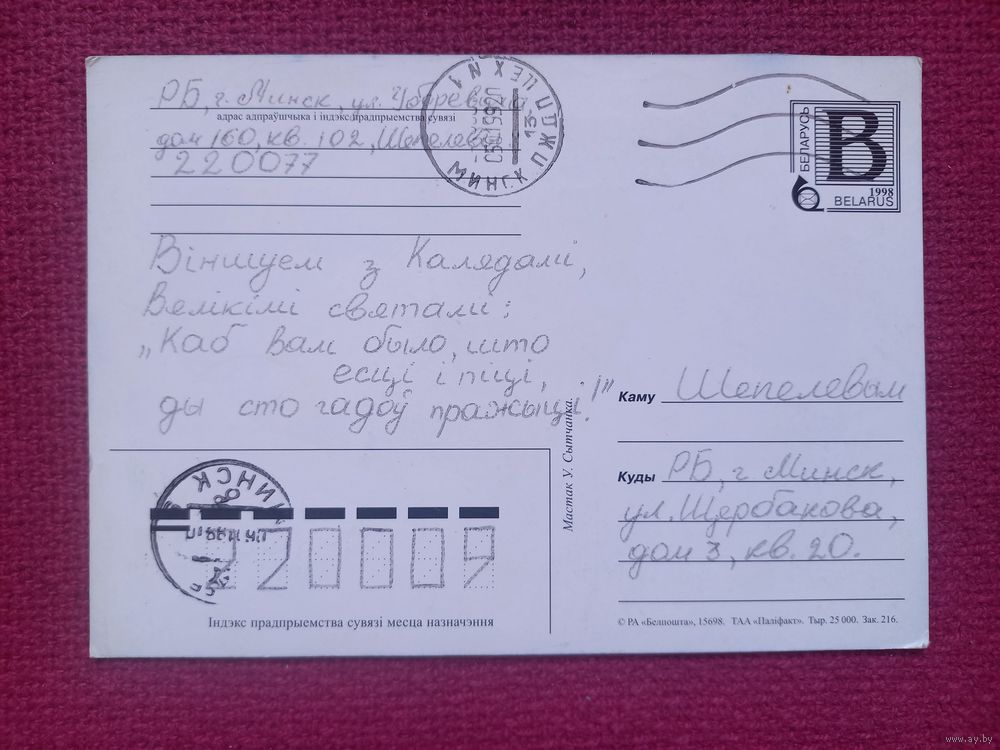 РБ, г. Минск, ул. Уборевича,
адрас адпраўшчыка і індэкс прадпрыемства сувязі
дом 160, кв. 102, Шепелевы
220077
МИНСК
БЕЛАРУСЬ
B
1998
BELARUS
Віншуем з Калядамі,
Вялікімі святамі:
„Каб Вам было, што
есці і піці,
ды сто гадоў пражыці!"
Мастак У. Сытчанка.
Каму Шепелевым
Куды РБ, г. Минск,
ул. Щербакова,
дом 3, кв. 20.
МИНСК
220009
Індэкс прадпрыемства сувязі месца назначэння
© РА «Белпошта», 15698. ТАА «Паліфакт». Тыр. 25 000. Зак. 216.
www.ay.by